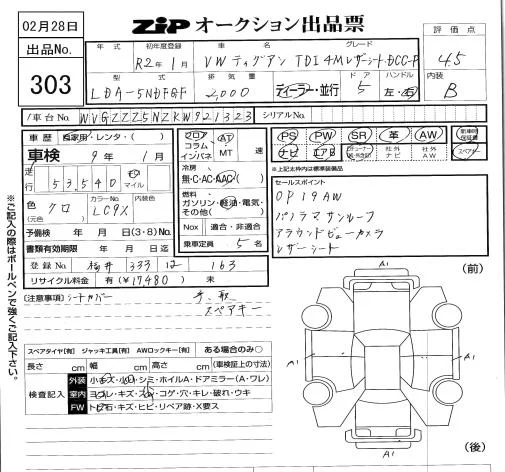 02月28日
ZIP オークション出品票
出品No.
303
年式
初年度登録
車名
グレード
評価点
R2年1月
VWティグアン TDI 4MレザーシートDCC-P
4.5
型式
排気量
ドア
ハンドル
内装
LDA-5NDFGF
2,000
ディーラー・並行
5
左・右
B
車台No.
WVGZZZ5NZKW921323
シリアルNo.
車歴
自家用・レンタ・( )
フロア
コラム
インパネ
AT
MT
速
PS
PW
SR
革
AW
新車時保証書
ナビ
エアB
社外ナビ
社外AW
スペアキー
車検
9年1月
冷房
無・C・AC・AAC( )
※上記太枠内は標準装備品
走行
53540
km
マイル
燃料
ガソリン・軽油・電気・
その他( )
セールスポイント
OP19AW
パノラマサンルーフ
アラウンドビューカメラ
レザーシート
色
クロ
(元色)
カラーNo.
LC9X
内装色
Nox
適合・非適合
予備検
年 月 日(3・8)No.
書類有効期限
年 月 日迄
乗車定員
5名
登録No.
333
12
163
リサイクル料金
有(¥17480)
未
(注意事項)
シートカバー
スペアキー
※ご記入の際はボールペンで強くご記入下さい。
スペアタイヤ[有] ジャッキ工具[有] AWロックキー[有]
ある場合のみ○
長さ cm 幅 cm 高さ cm (車検証上の寸法)
検査記入
外装
小キズ・小凹・シミ・ホイルA・ドアミラー(A・ワレ)
室内
ヨゴレ・キズ・スレ・コゲ・穴・キレ・破れ・ウキ
FW
トビ石・キズ・ヒビ・リペア跡・X要ス
(前)
A1
A1
A1
A1
(後)